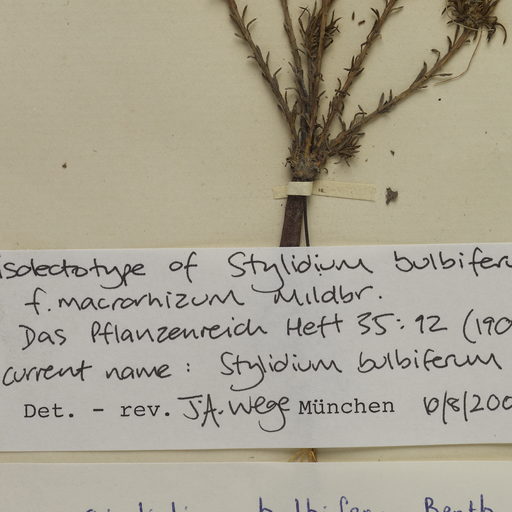 isolectotype of Stylidium bulbiferu
f. macrorhizum Mildbr.
Das Pflanzenreich Heft 35: 92 (190
current name: Stylidium bulbiferum
Det. - rev. J.A. Wege München 10/8/200
bulbiferum Benth